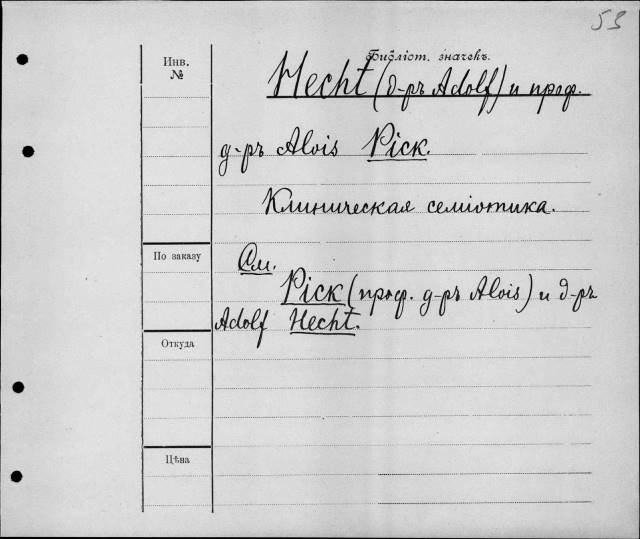 53
Инв.
№
Библіот. значекъ.
Hecht (д-ръ Adolf) и проф.
д-ръ Alois Pick.
Клиническая семіотика.
По заказу
См.
Pick (проф. д-ръ Alois) и д-ръ
Adolf Hecht.
Откуда
Цѣна